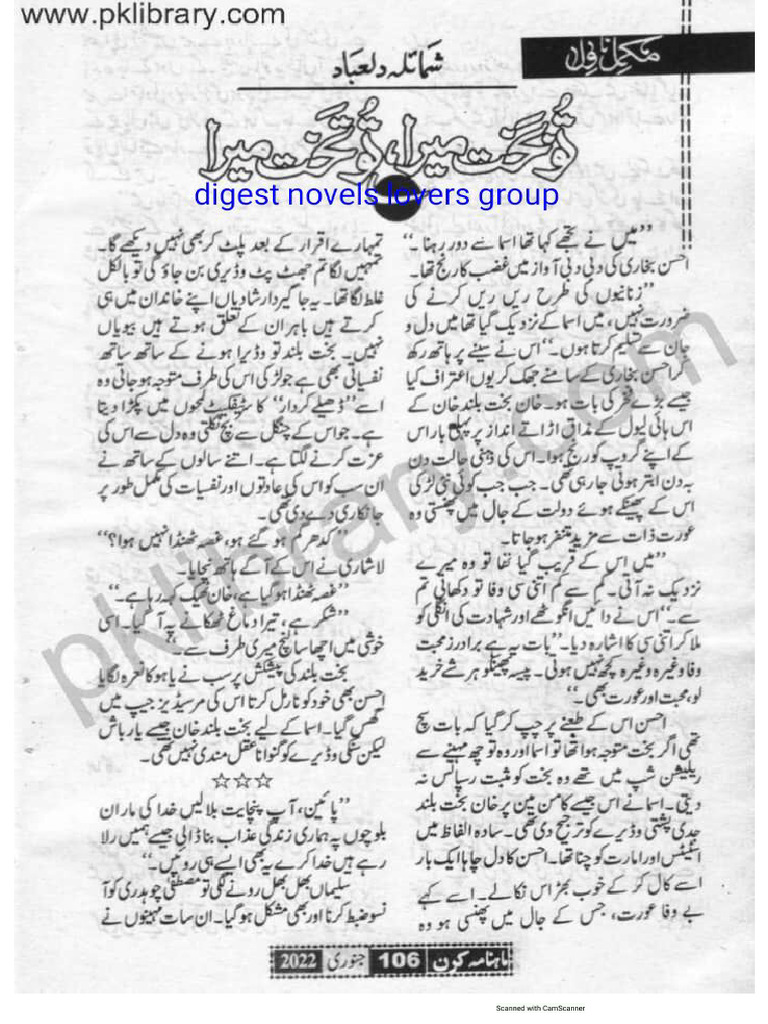 www.pklibrary.com
مکمل ناول
شمائلہ دلعباد
تُو بخت میرا، تُو تخت میرا
digest novels lovers group
”میں نے تجھے کہا تھا اسما سے دور رہنا۔“
احسن بخاری کی دبی دبی آواز میں غضب کا رنج تھا۔
”زنانیوں کی طرح ریں ریں کرنے کی
ضرورت نہیں، میں اسما کے نزدیک گیا تھا میں دل و
جان سے تسلیم کرتا ہوں۔“ اس نے سینے پر ہاتھ رکھ
کر احسن بخاری کے سامنے جھک کر یوں اعتراف کیا
جیسے بڑے فخر کی بات ہو۔ خان بخت بلند خان کے
اس ہائی لیول کے مذاق اڑاتے انداز پر پہلی بار اس
کے اپنے گروپ کو رنج ہوا۔ اس کی ذہنی حالت دن
بہ دن ابتر ہوتی جا رہی تھی۔ جب جب کوئی نئی لڑکی
اس کے پھینکے ہوئے دولت کے جال میں پھنستی وہ
عورت ذات سے مزید متنفر ہو جاتا۔
”میں اس کے قریب گیا تھا تو وہ میرے
نزدیک نہ آتی۔ کم سے کم اتنی سی وفا تو دکھاتی تم
سے۔“ اس نے دائیں انگوٹھے اور شہادت کی انگلی کو
ملا کر اتنی سی کا اشارہ دیا۔ ”بات یہ ہے برادرز محبت
وفا وغیرہ وغیرہ کچھ نہیں ہوتی۔ پیسہ پھینکو ہر شے خرید
لو، محبت اور عورت بھی۔“
احسن اس کے طعنے پر چپ کر گیا کہ بات سچ
تھی اگر بخت متوجہ ہوا تھا تو اسما اور وہ تو چھ مہینے سے
ریلیشن شپ میں تھے وہ بخت کو مثبت رسپانس نہ
دیتی۔ اسما نے اس جیسے کامن مین پر خان بخت بلند
جدی پشتی وڈیرے کو ترجیح دی تھی۔ سادہ الفاظ میں
اسٹیٹس اور امارت کو چنا تھا۔ احسن کا دل چاہا ایک بار
اسے کال کر کے خوب بھڑاس نکالے۔ اسے کہے
بے وفا عورت، جس کے جال میں پھنسی ہو وہ
تمہارے اقرار کے بعد پلٹ کر بھی نہیں دیکھے گا۔
تمہیں لگا تم جھٹ پٹ وڈیری بن جاؤ گی تو بالکل
غلط لگا تھا۔ یہ جاگیردار شادیاں اپنے خاندان میں ہی
کرتے ہیں باہر ان کے تعلق ہوتے ہیں بیویاں
نہیں۔ بخت بلند تو وڈیرا ہونے کے ساتھ ساتھ
نفسیاتی بھی ہے جو لڑکی اس کی طرف متوجہ ہو جاتی وہ
اسے ”ڈھیلے کردار“ کا سٹیفکیٹ لمحوں میں پکڑا دیتا
ہے۔ جو اس کے چنگل سے بچ نکلتی وہ دل سے اس کی
عزت کرنے لگتا ہے۔ اتنے سالوں کے ساتھ نے
ان سب کو اس کی عادتوں اور نفسیات کی مکمل طور پر
جانکاری دے دی تھی۔
”کدھر گم ہو گئے ہو، غصہ ٹھنڈا نہیں ہوا؟“
لاشاری نے اس کے آگے ہاتھ نچایا۔
”غصہ ٹھنڈا ہو گیا ہے، خان ٹھیک کہہ رہا ہے۔“
”شکر ہے، تیرا دماغ ٹھکانے پہ آ گیا۔ اسی
خوشی میں اچھا سا لنچ میری طرف سے۔“
بخت بلند کی پیشکش پر سب نے یاہو کا نعرہ لگایا
احسن بھی خود کو نارمل کرتا اس کی مرسڈیز جیپ میں
گھس گیا۔ اسما کے لیے بخت بلند خان جیسے یار باش
لیکن سنکی وڈیرے کو گنوانا عقل مندی نہیں تھی۔
☆☆☆
”پائین، آپ پنچایت بلالیں خدا کی مار ان
بلوچوں پہ ہماری زندگی عذاب بنا ڈالی جیسے ہمیں رلا
رہے ہیں خدا کرے یہ بھی ایسے ہی روئیں۔“
سلیماں بھل بھل رونے لگی تو مصطفیٰ چوہدری کو آ
نسو ضبط کرنا اور بھی مشکل ہو گیا۔ ان سات مہینوں نے
ماہنامہ کرن 106 جنوری 2022
pklibrary.com
Scanned with CamScanner